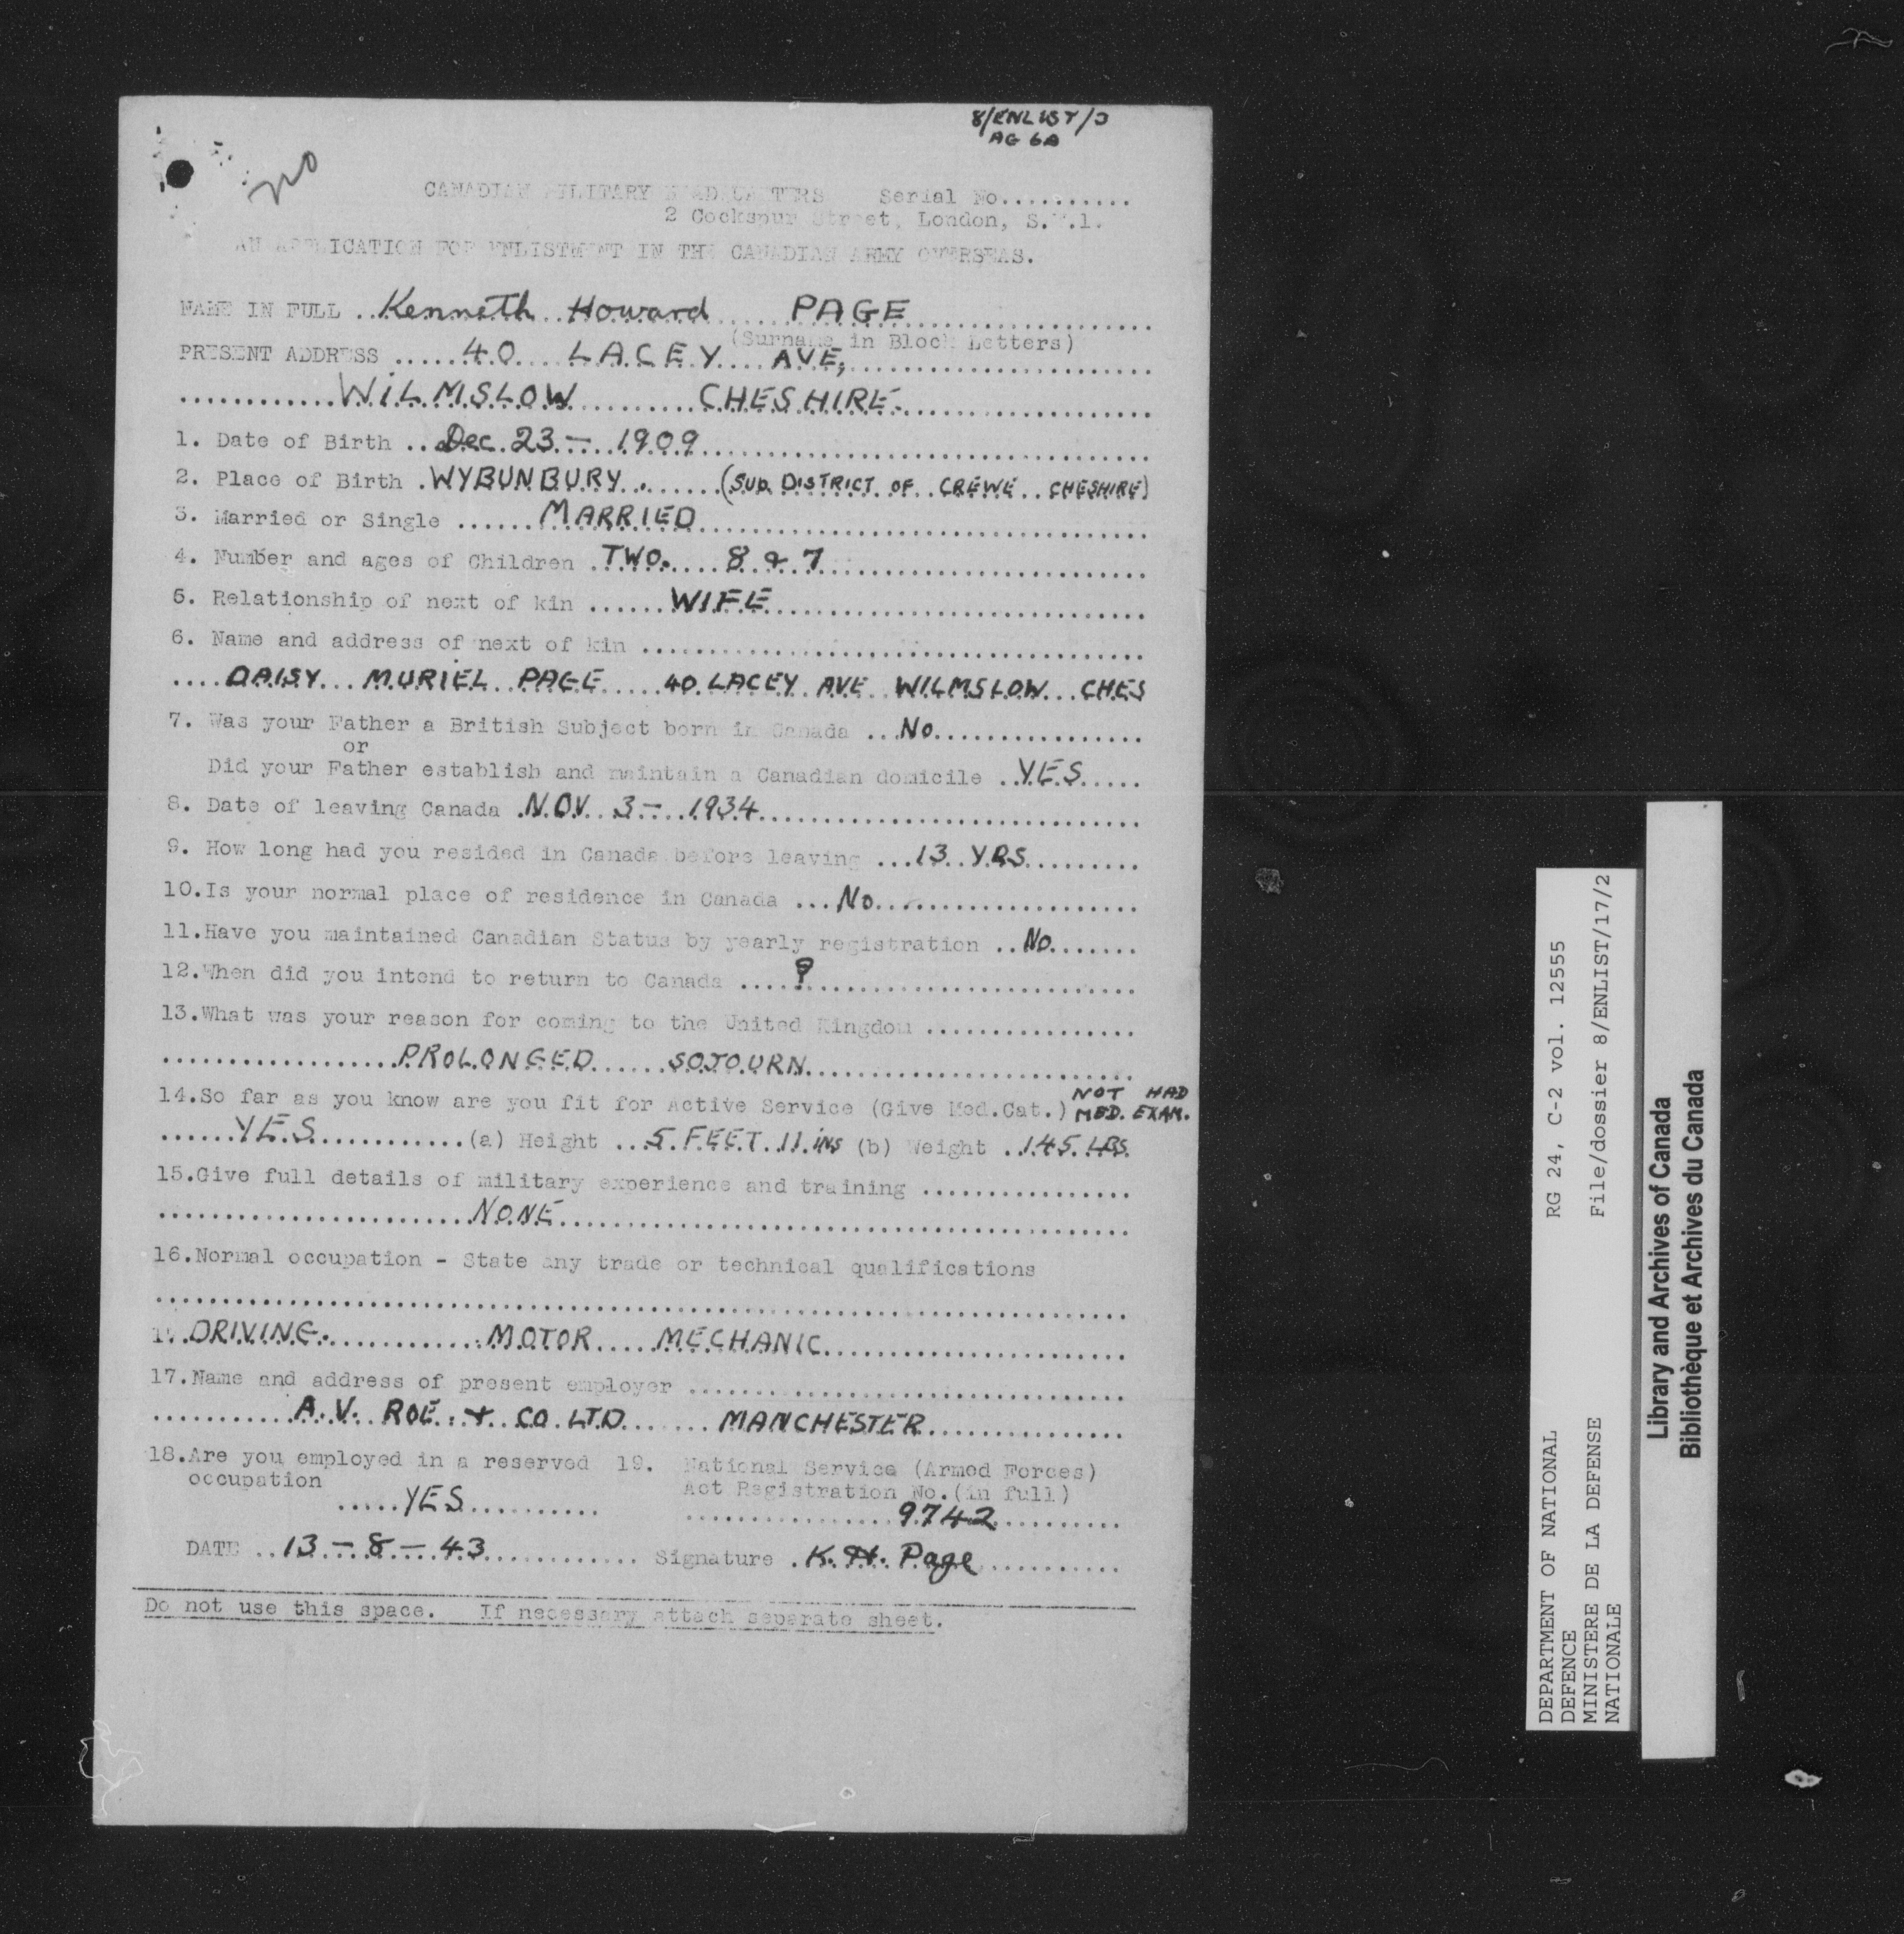 8/ENLIST/J
AG 6A
no
CANADIAN MILITARY HEADQUARTERS Serial No...........
2 Cockspur Street, London, S.W.1.
AN APPLICATION FOR ENLISTMENT IN THE CANADIAN ARMY OVERSEAS.
NAME IN FULL Kenneth Howard PAGE
(Surname in Block Letters)
PRESENT ADDRESS 40 LACEY AVE,
WILMSLOW CHESHIRE.
1. Date of Birth Dec. 23 - 1909
2. Place of Birth WYBUNBURY. (SUB DISTRICT OF CREWE CHESHIRE)
3. Married or Single MARRIED
4. Number and ages of Children TWO. 8 & 7
5. Relationship of next of kin WIFE
6. Name and address of next of kin
DAISY MURIEL PAGE 40 LACEY AVE WILMSLOW CHES
7. Was your Father a British Subject born in Canada No
or
Did your Father establish and maintain a Canadian domicile YES
8. Date of leaving Canada NOV 3 - 1934
9. How long had you resided in Canada before leaving 13 YRS
10. Is your normal place of residence in Canada No
11. Have you maintained Canadian Status by yearly registration No
12. When did you intend to return to Canada ?
13. What was your reason for coming to the United Kingdom
PROLONGED SOJOURN
14. So far as you know are you fit for Active Service (Give Med.Cat.) NOT HAD MED. EXAM.
YES (a) Height 5 FEET 11 ins (b) Weight 145 LBS.
15. Give full details of military experience and training
NONE
16. Normal occupation - State any trade or technical qualifications
DRIVING. MOTOR MECHANIC
17. Name and address of present employer
A. V. ROE & CO. LTD MANCHESTER
18. Are you employed in a reserved occupation YES
19. National Service (Armed Forces) Act Registration No. (in full)
9742
DATE 13 - 8 - 43 Signature K. H. Page
Do not use this space. If necessary attach separate sheet.
DEPARTMENT OF NATIONAL DEFENCE RG 24, C-2 vol. 12555
MINISTERE DE LA DEFENSE NATIONALE File/dossier 8/ENLIST/17/2
Library and Archives of Canada
Bibliothèque et Archives du Canada